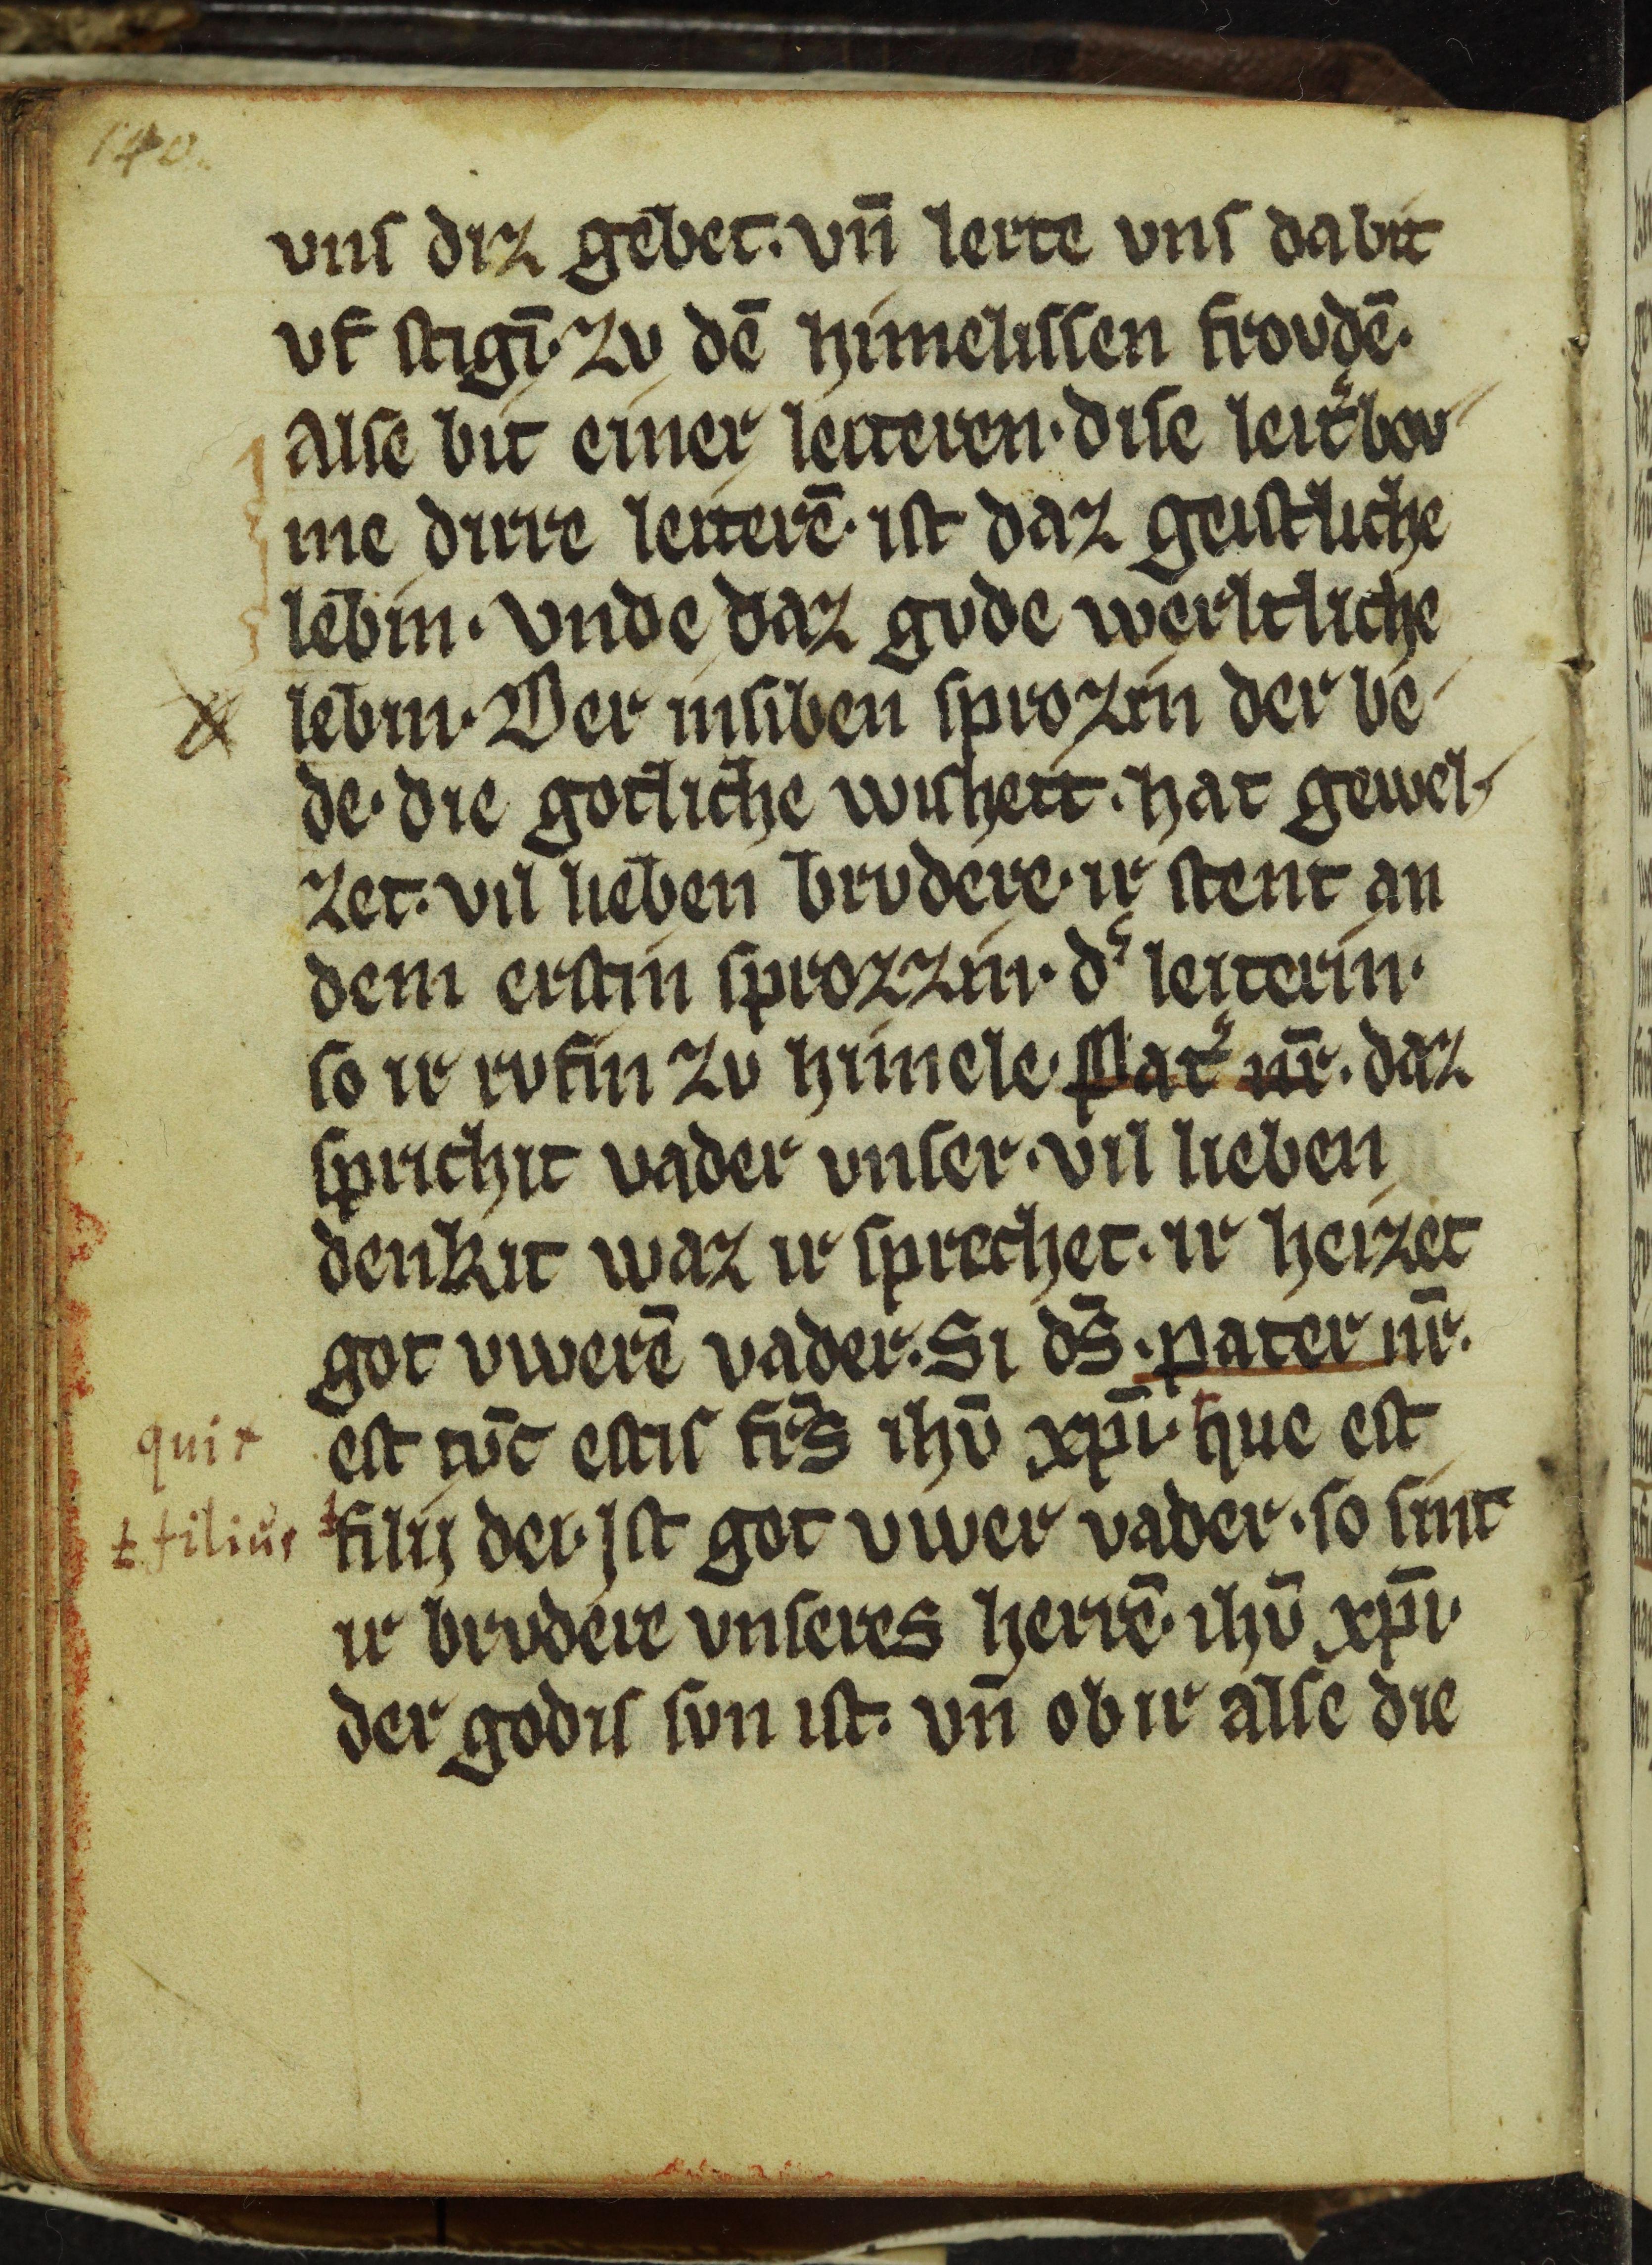 140.
vns diz gebet. vn̄ lerte vns da bit
vf stigī. zv dē himelissen frovdē.
Alse bit einer leiteren. dise leit͛bov
me dirre leiterē. ist daz geistliche
lebin. vnde daz gvde werltliche
lebin. Der insiben sprozin der be
de. die gotliche wisheit. hat gewel
zet. vil lieben brvdere. ir stent an
dem erstin sprozzin. d͛ leiterin.
so ir rvfin zv himele. Pat͛ nr̄. daz
sprichit vader vnser. vil lieben
denkit waz ir sprechet. ir heizet
got vwerē vader. Si ds̄. pater nr̄.
quit est tv̄c estis frs̄ ihv̄ xpī. hue est
filius filij dei. Ist got vwer vader. so sint
ir brvdere vnseres herrē. ihv̄ xpī.
der godis svn ist. vn̄ ob ir alse die